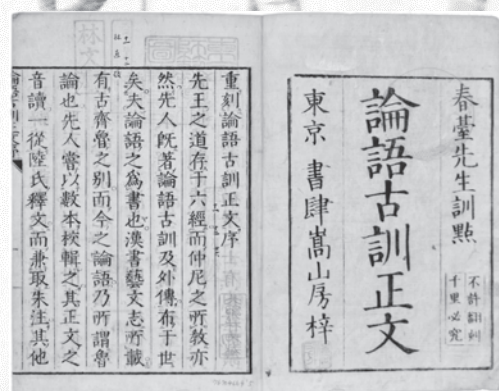 春臺先生訓點
不許翻刻
千里必究
論語古訓正文
東京 書肆嵩山房梓
重刻論語古訓正文序
先王之道存于六經而仲尼之所敎亦
然先人旣著論語古訓及外傳布于世
矣夫論語之爲書也漢書藝文志所載
有古齊魯之別而今之論語乃所謂魯
論也先人嘗以數本挍輯之其正文之
音讀一從陸氏釋文而兼取朱注其他